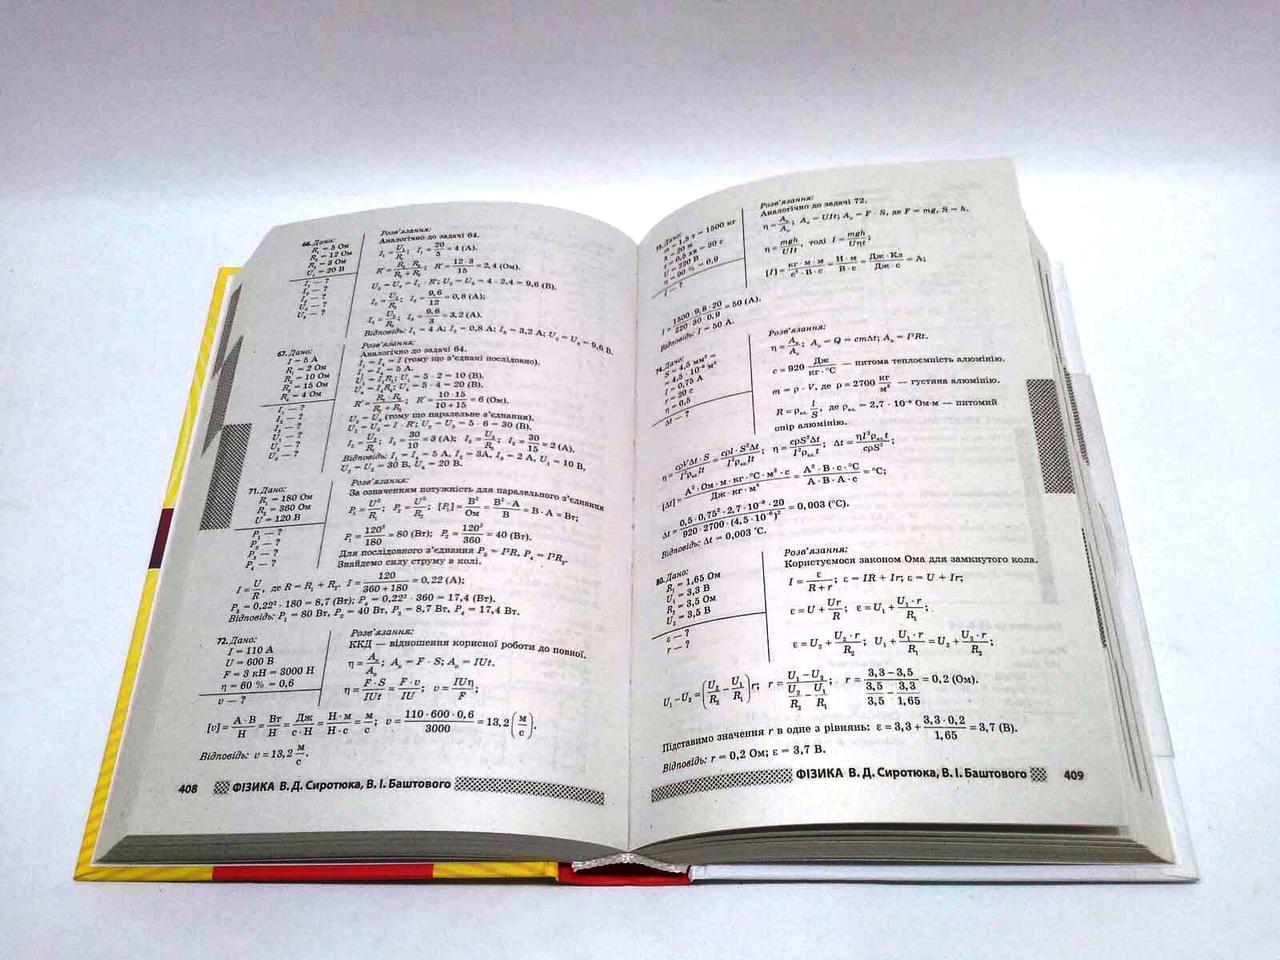 66. Дано:
R₁ = 5 Ом
R₂ = 12 Ом
R₃ = 3 Ом
U₁ = 20 В
I₁ — ?
I₂ — ?
I₃ — ?
U₂ — ?
U₃ — ?
Розв'язання:
Аналогічно до задачі 64.
I₁ = U₁/R₁; I₁ = 20/5 = 4 (А).
R' = R₂·R₃/(R₂ + R₃); R' = 12·3/15 = 2,4 (Ом).
U₂ = U₃ = I₁ · R'; U₂ = U₃ = 4 · 2,4 = 9,6 (В).
I₂ = U₂/R₂; I₂ = 9,6/12 = 0,8 (А);
I₃ = U₃/R₃; I₃ = 9,6/3 = 3,2 (А).
Відповідь: I₁ = 4 А; I₂ = 0,8 А; I₃ = 3,2 А; U₂ = U₃ = 9,6 В.
67. Дано:
I = 5 А
R₁ = 2 Ом
R₂ = 10 Ом
R₃ = 15 Ом
R₄ = 4 Ом
Розв'язання:
Аналогічно до задачі 64.
I₁ = I₄ = I (тому що з'єднані послідовно).
I₁ = I₄ = 5 А.
U₁ = I₁R₁; U₁ = 5 · 2 = 10 (В).
U₄ = I₄R₄; U₄ = 5 · 4 = 20 (В).
R' = R₂·R₃/(R₂ + R₃); R' = 10·15/(10+15) = 6 (Ом).
U₂ = U₃ (тому що паралельне з'єднання).
U₂ = U₃ = I · R'; U₂ = U₃ = 5 · 6 = 30 (В).
I₂ = U₂/R₂; I₂ = 30/10 = 3 (А); I₃ = U₃/R₃; I₃ = 30/15 = 2 (А).
Відповідь: I₁ = I₄ = 5 А, I₂ = 3А, I₃ = 2 А, U₁ = 10 В,
U₂ = U₃ = 30 В, U₄ = 20 В.
71. Дано:
R₁ = 180 Ом
R₂ = 360 Ом
U = 120 В
P₁ — ?
P₂ — ?
P₃ — ?
P₄ — ?
Розв'язання:
За означенням потужність для паралельного з'єднання
P₁ = U²/R₁; P₂ = U²/R₂; [P₁] = В²/Ом = В²·А/В = В · А = Вт;
P₁ = 120²/180 = 80 (Вт); P₂ = 120²/360 = 40 (Вт).
Для послідовного з'єднання P₃ = I²R₁ P₄ = I²R₂.
Знайдемо силу струму в колі.
I = U/R, де R = R₁ + R₂, I = 120/(360+180) = 0,22 (А);
P₃ = 0,22² · 180 = 8,7 (Вт); P₄ = 0,22² · 360 = 17,4 (Вт).
Відповідь: P₁ = 80 Вт, P₂ = 40 Вт, P₃ = 8,7 Вт, P₄ = 17,4 Вт.
72. Дано:
I = 110 А
U = 600 В
F = 3 кН = 3000 Н
η = 60 % = 0,6
v — ?
Розв'язання:
ККД — відношення корисної роботи до повної.
η = Aₖ/Aₙ; Aₖ = F · S; Aₙ = IUt.
η = F·S/IUt = F·v/IU; v = IUη/F;
[v] = А·В/Н = Вт/Н = Дж/с·Н = Н·м/Н·с = м/с; v = 110·600·0,6/3000 = 13,2 (м/с).
Відповідь: v = 13,2 м/с.
408 ФІЗИКА В. Д. Сиротюка, В. І. Баштового
Розв'язання:
Аналогічно до задачі 72.
η = Aₖ/Aₙ; Aₙ = UIt; Aₖ = F · S, де F = mg, S = h.
η = mgh/UIt, тоді I = mgh/Uηt;
[I] = кг·м·м/с²·В·с = Н·м/В·с = Дж·Кл/Дж·с = А;
I = 1500·9,8·20/220·30·0,9 = 50 (А).
Відповідь: I = 50 А.
Дано:
S = 4,5 мм² =
= 4,5·10⁻⁶ м²
I = 0,75 А
t = 20 с
η = 0,5
Δt — ?
Розв'язання:
η = Aₖ/Aₙ; Aₖ = Q = cmΔt; Aₙ = I²Rt.
c = 920 Дж/кг·°С — питома теплоємність алюмінію.
m = ρ · V, де ρ = 2700 кг/м³ — густина алюмінію.
R = ρₙₒₙ l/S, де ρₙₒₙ = 2,7 · 10⁻⁸ Ом·м — питомий
опір алюмінію.
Δt = 0,5·0,75²·2,7·10⁻⁸·20/920·2700·(4,5·10⁻⁶)² = 0,003 (°С).
Відповідь: Δt = 0,003 °С.
80. Дано:
R₁ = 1,65 Ом
U₁ = 3,3 В
R₂ = 3,5 Ом
U₂ = 3,5 В
ε — ?
r — ?
Розв'язання:
Користуємося законом Ома для замкнутого кола.
I = ε/(R+r); ε = IR + Ir; ε = U + Ir;
ε = U + Ur/R; ε = U₁ + U₁·r/R₁;
ε = U₂ + U₂·r/R₂; U₁ + U₁·r/R₁ = U₂ + U₂·r/R₂;
U₁ − U₂ = (U₂/R₂ − U₁/R₁)r; r = (U₁−U₂)/(U₂/R₂ − U₁/R₁); r = (3,3−3,5)/(3,5/3,5 − 3,3/1,65) = 0,2 (Ом).
Підставимо значення r в одне з рівнянь: ε = 3,3 + 3,3·0,2/1,65 = 3,7 (В).
Відповідь: r = 0,2 Ом; ε = 3,7 В.
ФІЗИКА В. Д. Сиротюка, В. І. Баштового 409